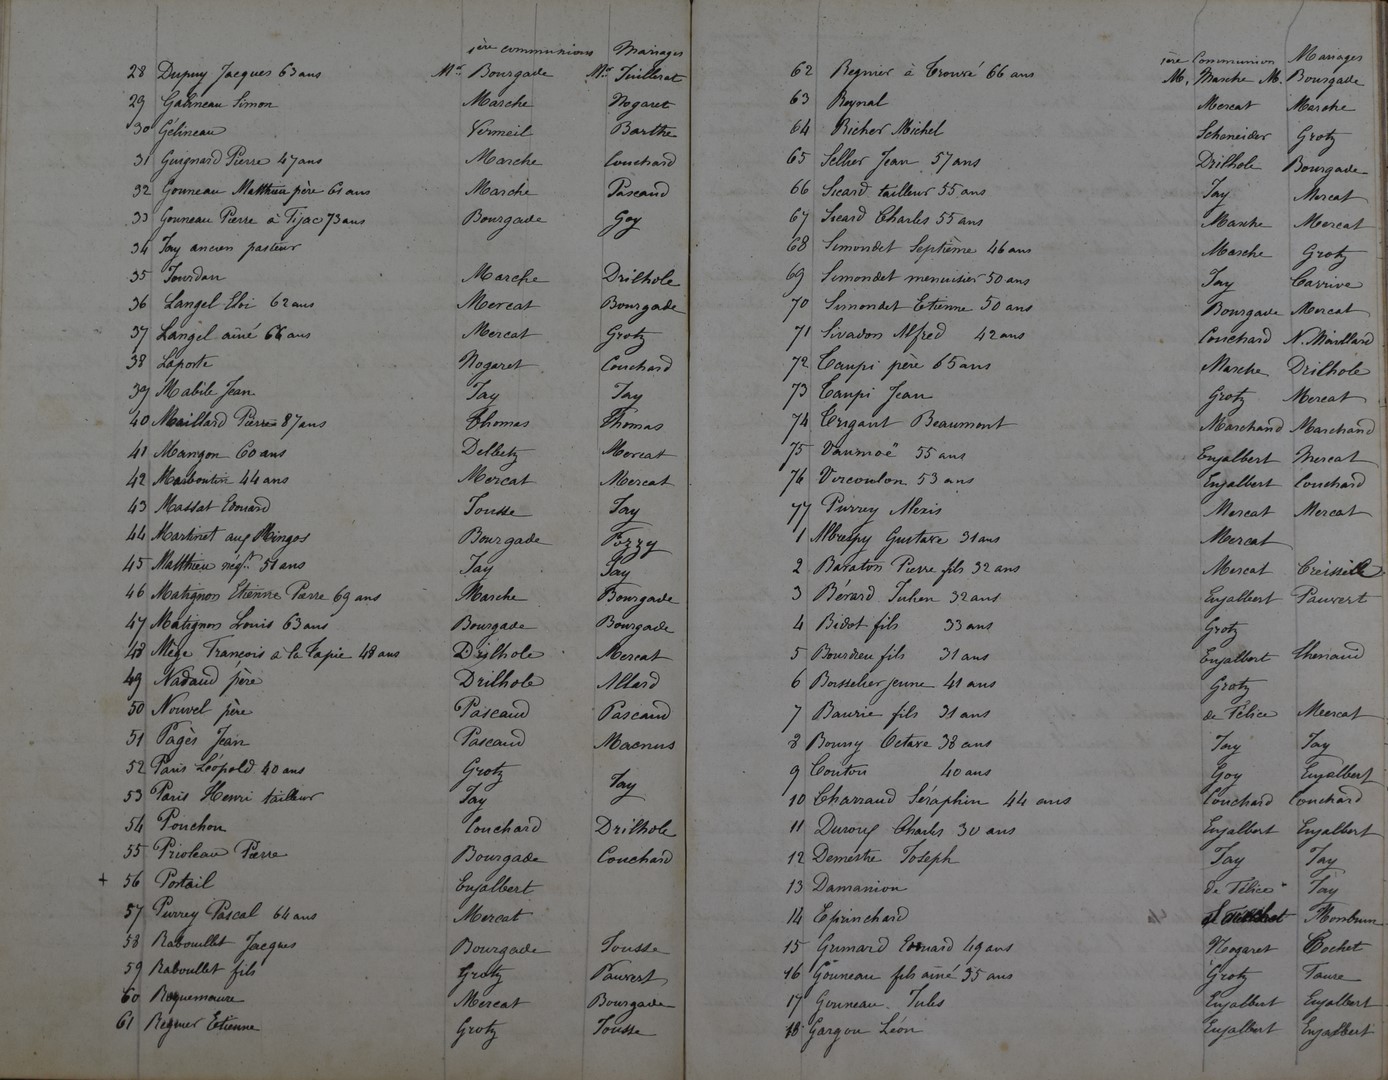 1ère communions Mariages
28 Dupuy Jacques 63 ans Mr. Bourgade Mr. Juillerat
29 Galineau Simon Marche Nogaret
30 Gélineau Vermeil Barthe
31 Guignard Pierre 47 ans Marche Couchard
32 Gouneau Matthieu père 61 ans Marche Pascaud
33 Gouneau Pierre à Tijac 73 ans Bourgade Goy
34 Jay ancien pasteur
35 Jourdan Marche Drilhole
36 Langel Eloi 62 ans Mercat Bourgade
37 Langel aîné 66 ans Mercat Grotz
38 Laporte Nogaret Couchard
39 Mabile Jean Jay Jay
40 Maillard Pierre 87 ans Thomas Thomas
41 Mangon 60 ans Delbetz Mercat
42 Marboutin 44 ans Mercat Mercat
43 Massat Edouard Jousse Jay
44 Martinet aux Mingos Bourgade Fozzy
45 Matthieu négt. 51 ans Jay Jay
46 Matignon Etienne Pierre 69 ans Marche Bourgade
47 Matignon Louis 63 ans Bourgade Bourgade
48 Mège François à la Tapie 48 ans Drilhole Mercat
49 Nadaud père Drilhole Allard
50 Nouvel père Pascaud Pascaud
51 Pagès Jean Pascaud Macnus
52 Paris Léopold 40 ans Grotz
53 Paris Henri tailleur Jay Jay
54 Pouchon Couchard Drilhole
55 Prioleau Pierre Bourgade Couchard
+ 56 Portail Enjalbert
57 Purrey Pascal 64 ans Mercat
58 Rabouillet Jacques Bourgade Jousse
59 Raboullet fils Grotz Pauvert
60 Roquemaure Mercat Bourgade
61 Regnier Etienne Grotz Jousse
1ère Communion Mariages
62 Regnier à Trouvé 66 ans M. Marche M. Bourgade
63 Reynal Mercat Marche
64 Richer Michel Schneider Grotz
65 Sellier Jean 57 ans Drilhole Bourgade
66 Sicard tailleur 55 ans Jay Mercat
67 Sicard Charles 55 ans Marche Mercat
68 Simondet Septième 46 ans Marche Grotz
69 Simondet menuisier 50 ans Jay Carrive
70 Simondet Etienne 50 ans Bourgade Mercat
71 Sivadon Alfred 42 ans Couchard N. Maillard
72 Taupi père 65 ans Marche Drilhole
73 Taupi Jean Grotz Mercat
74 Trigant Beaumont Marchand Marchand
75 Vaumoë 55 ans Enjalbert Mercat
76 Vircoulon 53 ans Enjalbert Couchard
77 Purrey Alexis Mercat Mercat
1 Albrespy Gustave 31 ans Mercat
2 Baraton Pierre fils 32 ans Mercat Creisseil
3 Bérard Julien 32 ans Enjalbert Pauvert
4 Bidot fils 33 ans Grotz
5 Bourdieu fils 31 ans Enjalbert
6 Boisselier jeune 41 ans Grotz
7 Baurie fils 31 ans de Félice Mercat
8 Bouny Octave 38 ans Jay Jay
9 Coutou 40 ans Goy Enjalbert
10 Charraud Séraphin 44 ans Couchard Couchard
11 Duroux Charles 30 ans Enjalbert Enjalbert
12 Demestre Joseph Jay Jay
13 Damanion de Félice Jay
14 Eprinchard Monbrun
15 Grimard Edouard 49 ans Nogaret Cochet
16 Gouneau fils aîné 35 ans Grotz Faure
17 Gouneau Jules Enjalbert Enjalbert
18 Gargou Léon Enjalbert Enjalbert